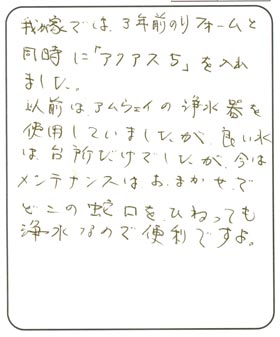 我が家では、3年前のリフォームと
同時に「アクアス5」を入れ
ました。
以前はアムウェイの浄水器を
使用していましたが、良い水
は、台所だけでしたが、今は
メンテナンスはおまかせで
どこの蛇口をひねっても
浄水なので便利ですよ。